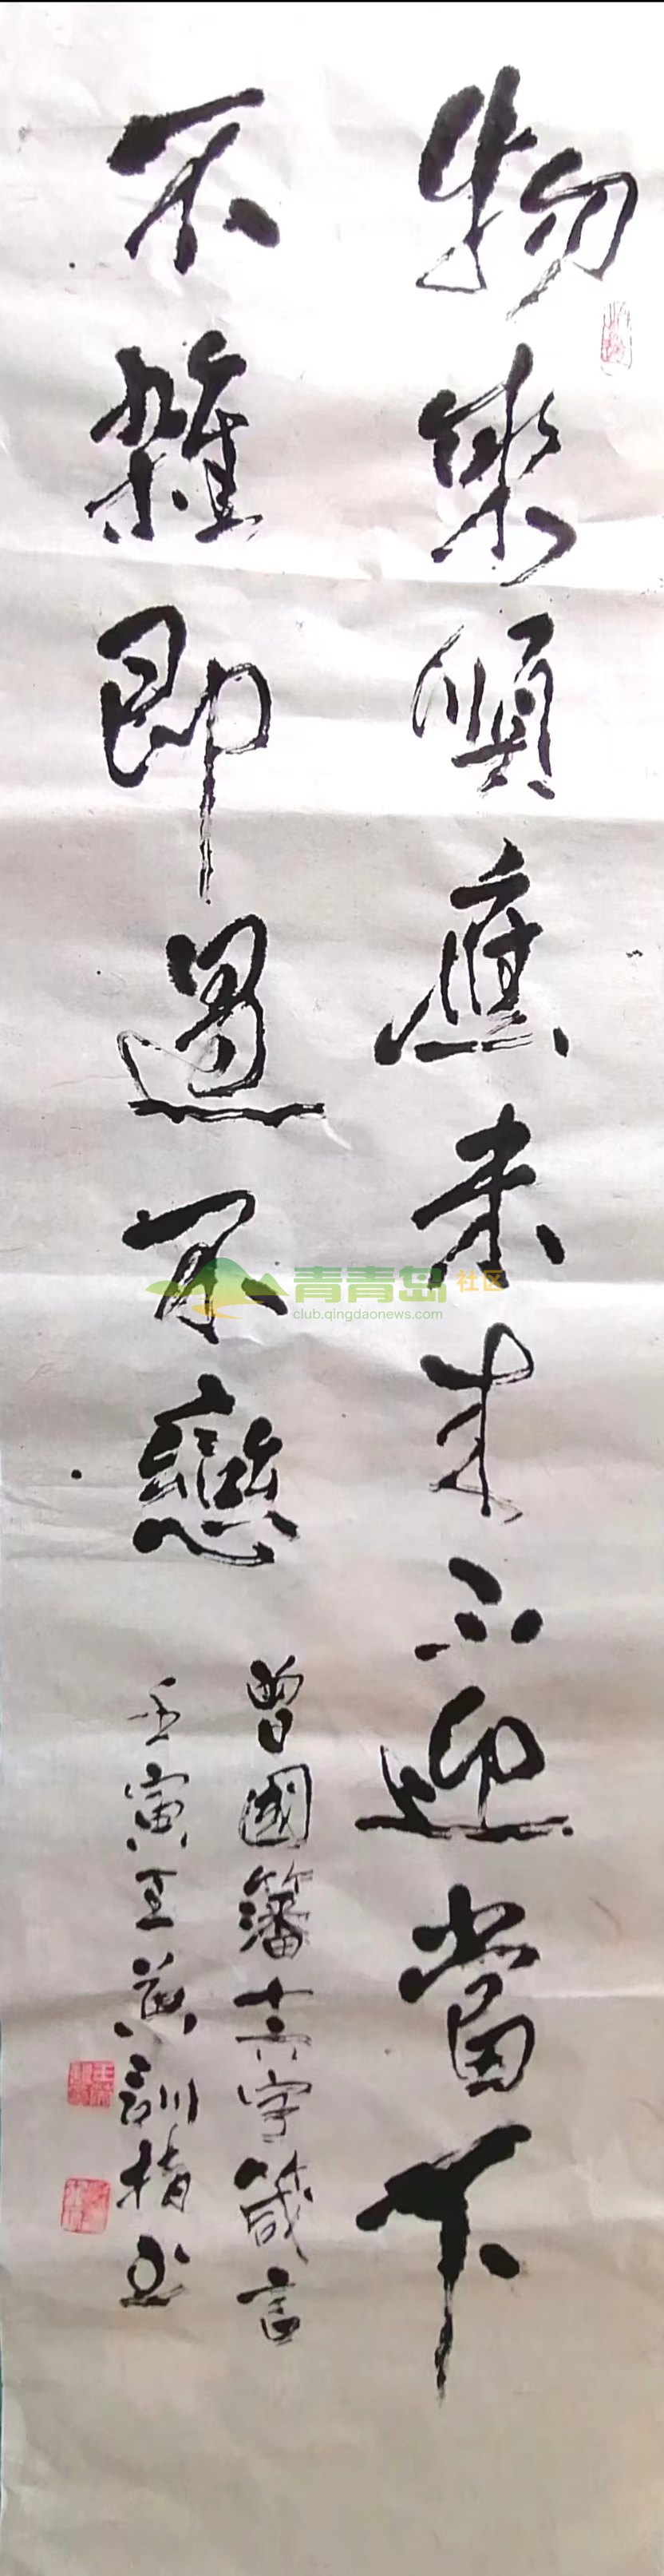 物來順應未來不迎當下
不雜即過不戀
曾國藩十六字箴言
壬寅王英訓指書
青青岛社区
club.qingdaonews.com